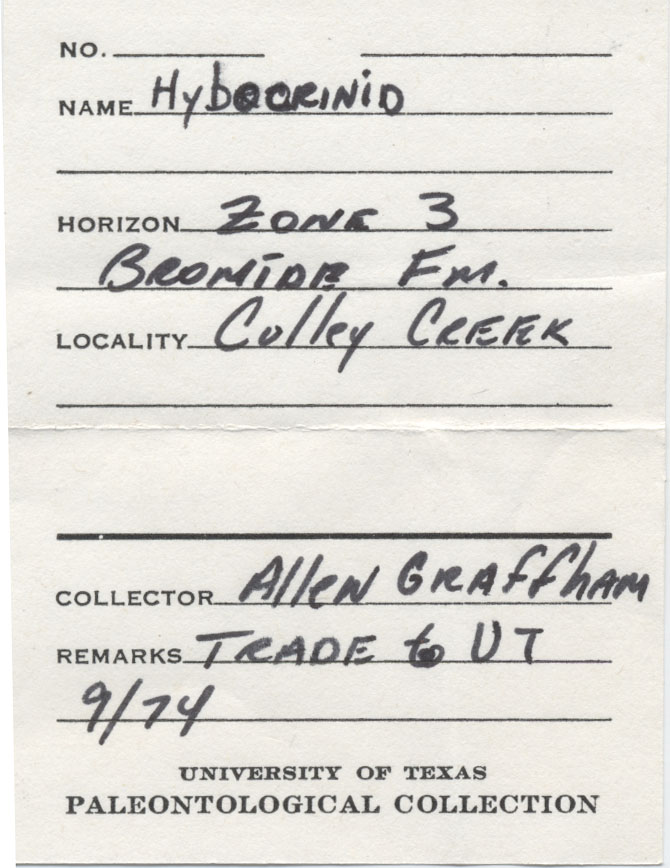 NO.
NAME Hybocrinid
HORIZON Zone 3
Bromide Fm.
LOCALITY Culley Creek
COLLECTOR Allen Graffham
REMARKS Trade to UT
9/74
UNIVERSITY OF TEXAS
PALEONTOLOGICAL COLLECTION